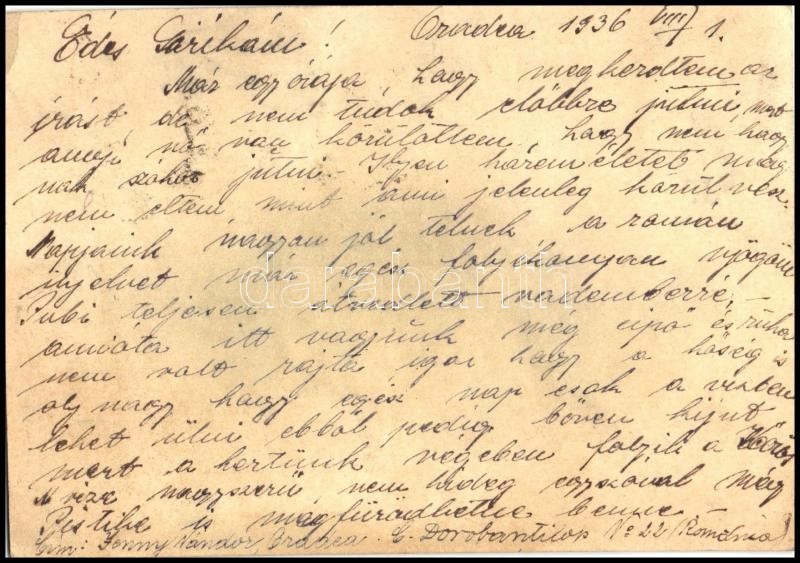 Édes Sárikám! Oradea 1936 VIII/1.
Már egy órája, hogy megkezdtem az
írást, de nem tudok előbbre jutni, mert
annyi nő van körülöttem, hogy nem hagy
nak szóhoz jutni. Ilyen hárem életet még
nem éltem mint ami jelenleg körül vesz.
Napjaink nagyon jól telnek a román
nyelvet már egész folyékonyan nyögöm
Pubi teljesen átvedlett vademberré, –
amióta itt vagyunk még cipő és ruha
nem volt rajta igaz hogy a hőség is
oly nagy hogy egész nap csak a vízben
lehet ülni ebből pedig bőven kijut
mert a kertünk végében folyik a Körös
A vize nagyszerű nem hideg egyszóval még
Pistike is megfürödhetne benne. –
Cím: Jenny Nándor, Oradea C. Dorobantilor No 22 (România)
darabanth